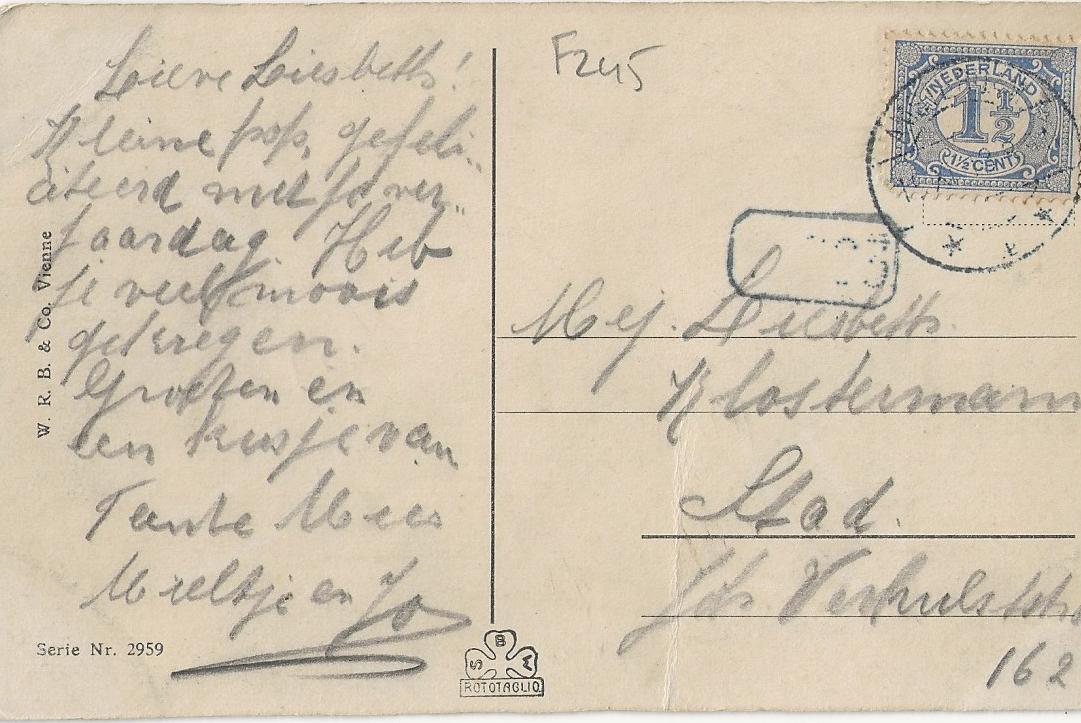 Lieve Liesbeth!
Kleine pop, gefeli-
citeerd met je ver-
jaardag. Heb
je veel moois
gekregen.
Groeten en
een kusje van
Tante Mies
Mieltje en Jo
W. R. B. & Co, Vienne
Serie Nr. 2959
S B M
ROTOTAGLIO
F245
NEDERLAND
1 1/2
1½ CENT
Mej. Liesbeth
Klosterman
Stad.
Joh. Verhulststr
162